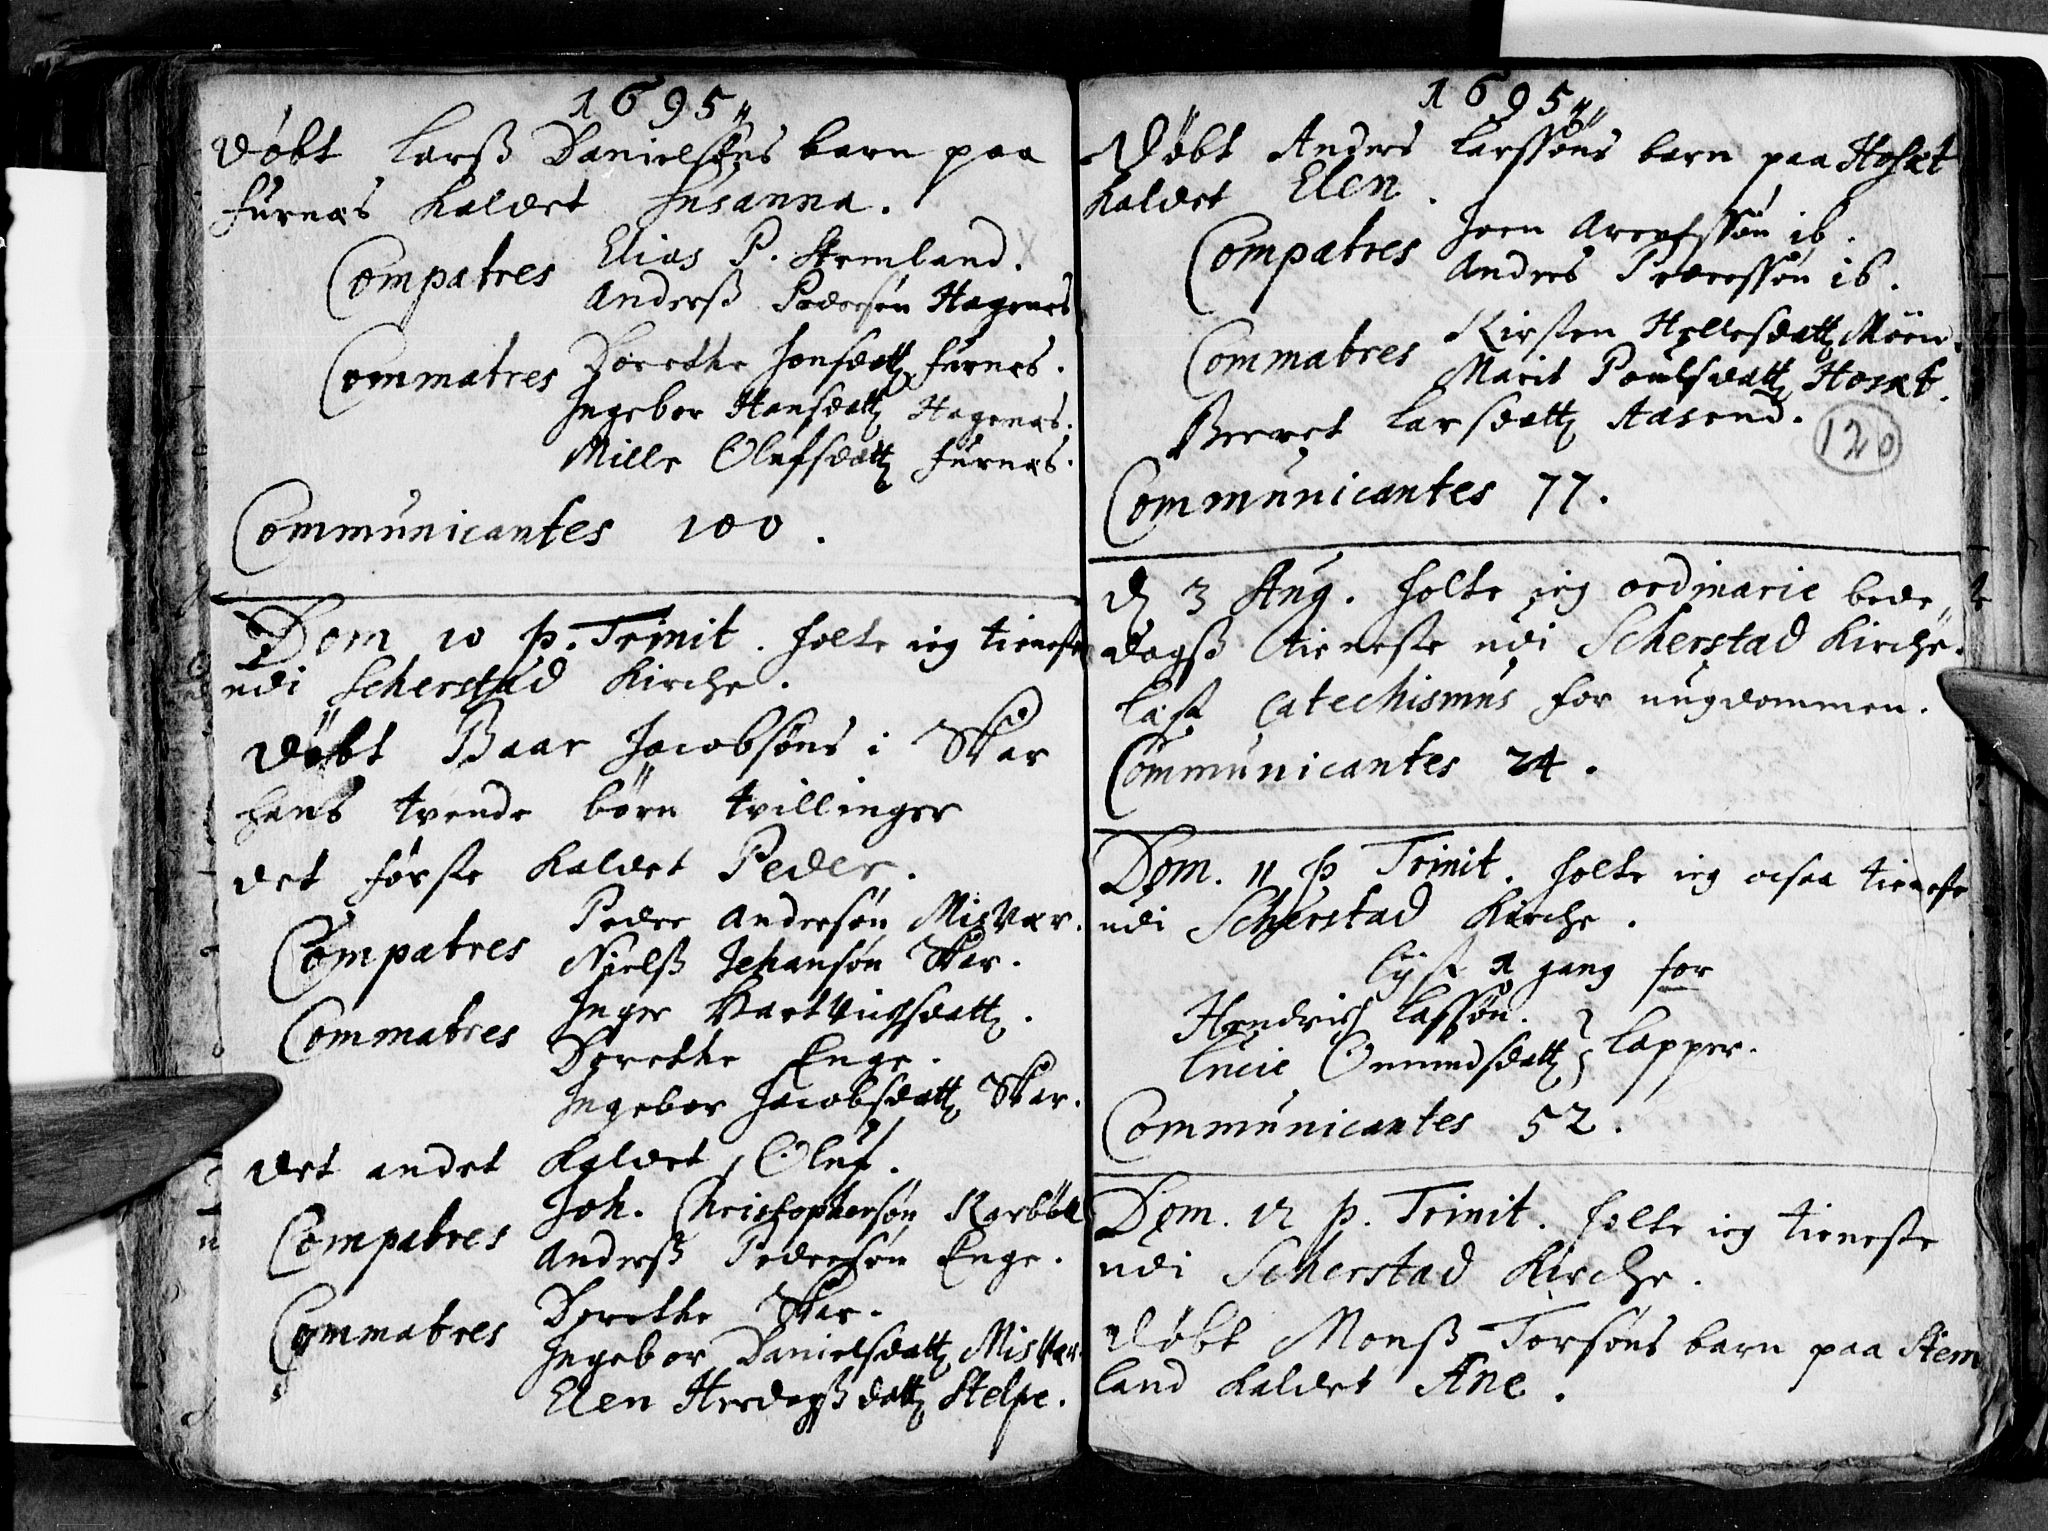 1695„
Døbt Larß Danielsøns barn paa
Furnæs kaldet Susanna.
Compatres Elias P. Stemland.
Anderß Pedersøn Hagenes
Commatres Dorethe Jonsdatt. Furnes.
Ingebor Hansdatt. Hagenæs.
Mille Olufsdatt. Furnæs.
Communicantes 100.
Dom 10 p. Trinit. holte ieg tieneste
udi Scherstad Kirche.
Døbt Baar Jacobsøns i Skar
hans tvende børn tvillinger
det første kaldet Peder.
Compatres Peder Andersøn Misvær.
Nielß Johansøn Skar.
Commatres Inger Hartvigsdatt.
Dorethe Enge.
Ingebor Jacobsdatt. Skar.
det andet kaldet Oluf.
Compatres Joh. Christophersøn Karbøll
Anderß Pedersøn Enge.
Commatres Dorethe Skar.
Ingebor Danielsdatt. Misvær
Elen Herdagß datt. Stelpe.
1695„
Døbt Anders Larssøns barn paa Hoset
kaldet Elen.
Compatres Joen ib.
Anders Pederssøn ib.
Commatres Kirsten Hellesdatt. Moen.
Marit Poulsdatt. Hoset.
Berret Larsdatt. Aasend.
120
Communicantes 77.
D. 3 Aug. holte ieg ordinarie bede„
dagß tieneste udi Scherstad Kirche.
læst Catechismus for ungdommen.
Communicantes 24.
Dom. 11 p Trinit. holte ieg ocsaa tieneste
udi Scherstad Kirche.
lyst 1 gang for
Hendrich Lassøn.
Lucie Omundsdatt. } Lapper.
Communicantes 52.
Dom. 12 p. Trinit. holte ieg tieneste
udi Scherstad Kirche.
Døbt Monß Torsøns barn paa Stem
land kaldet Ane.